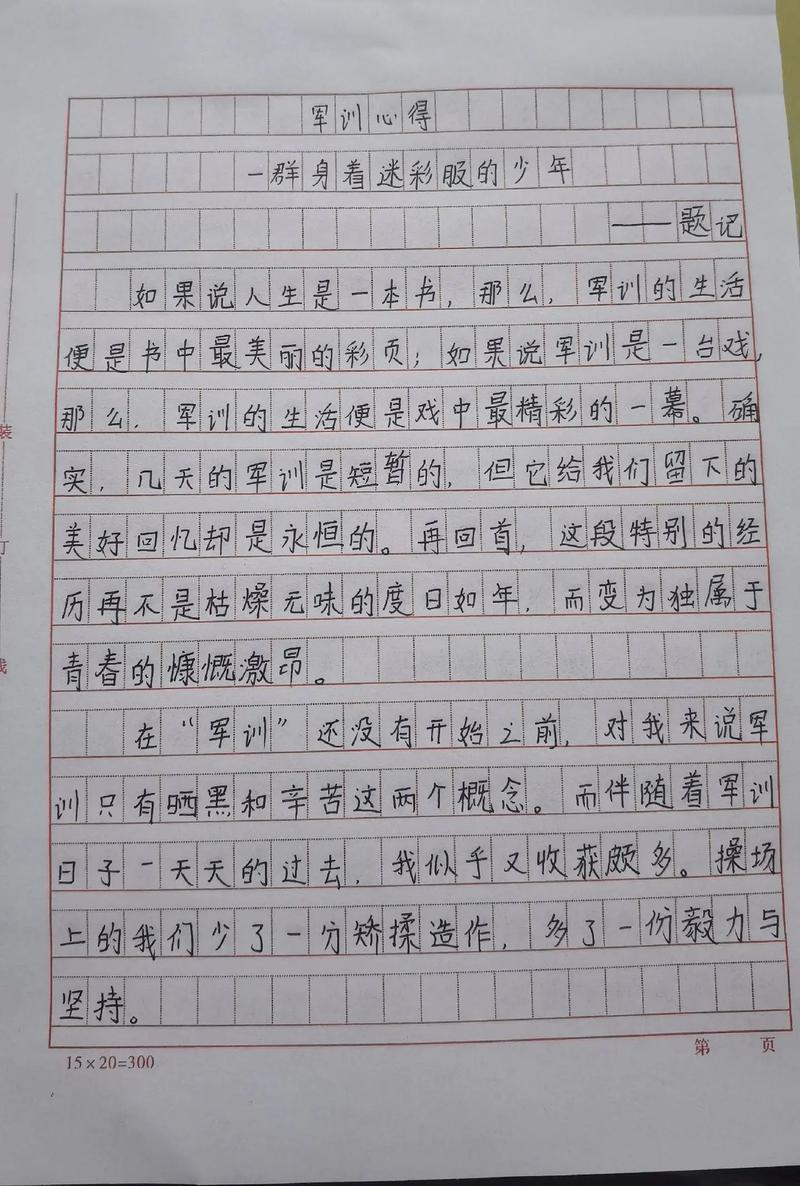 军训心得
一群身着迷彩服的少年
——题记
如果说人生是一本书，那么，军训的生活
便是书中最美丽的彩页；如果说军训是一台戏，
那么，军训的生活便是戏中最精彩的一幕。确
实，几天的军训是短暂的，但它给我们留下的
美好回忆却是永恒的。再回首，这段特别的经
历再不是枯燥无味的度日如年，而变为独属于
青春的慷慨激昂。
在“军训”还没有开始之前，对我来说军
训只有晒黑和辛苦这两个概念。而伴随着军训
日子一天天的过去，我似乎又收获颇多。操场
上的我们少了一分矫揉造作，多了一份毅力与
坚持。
15×20=300
第 页
装
订
线